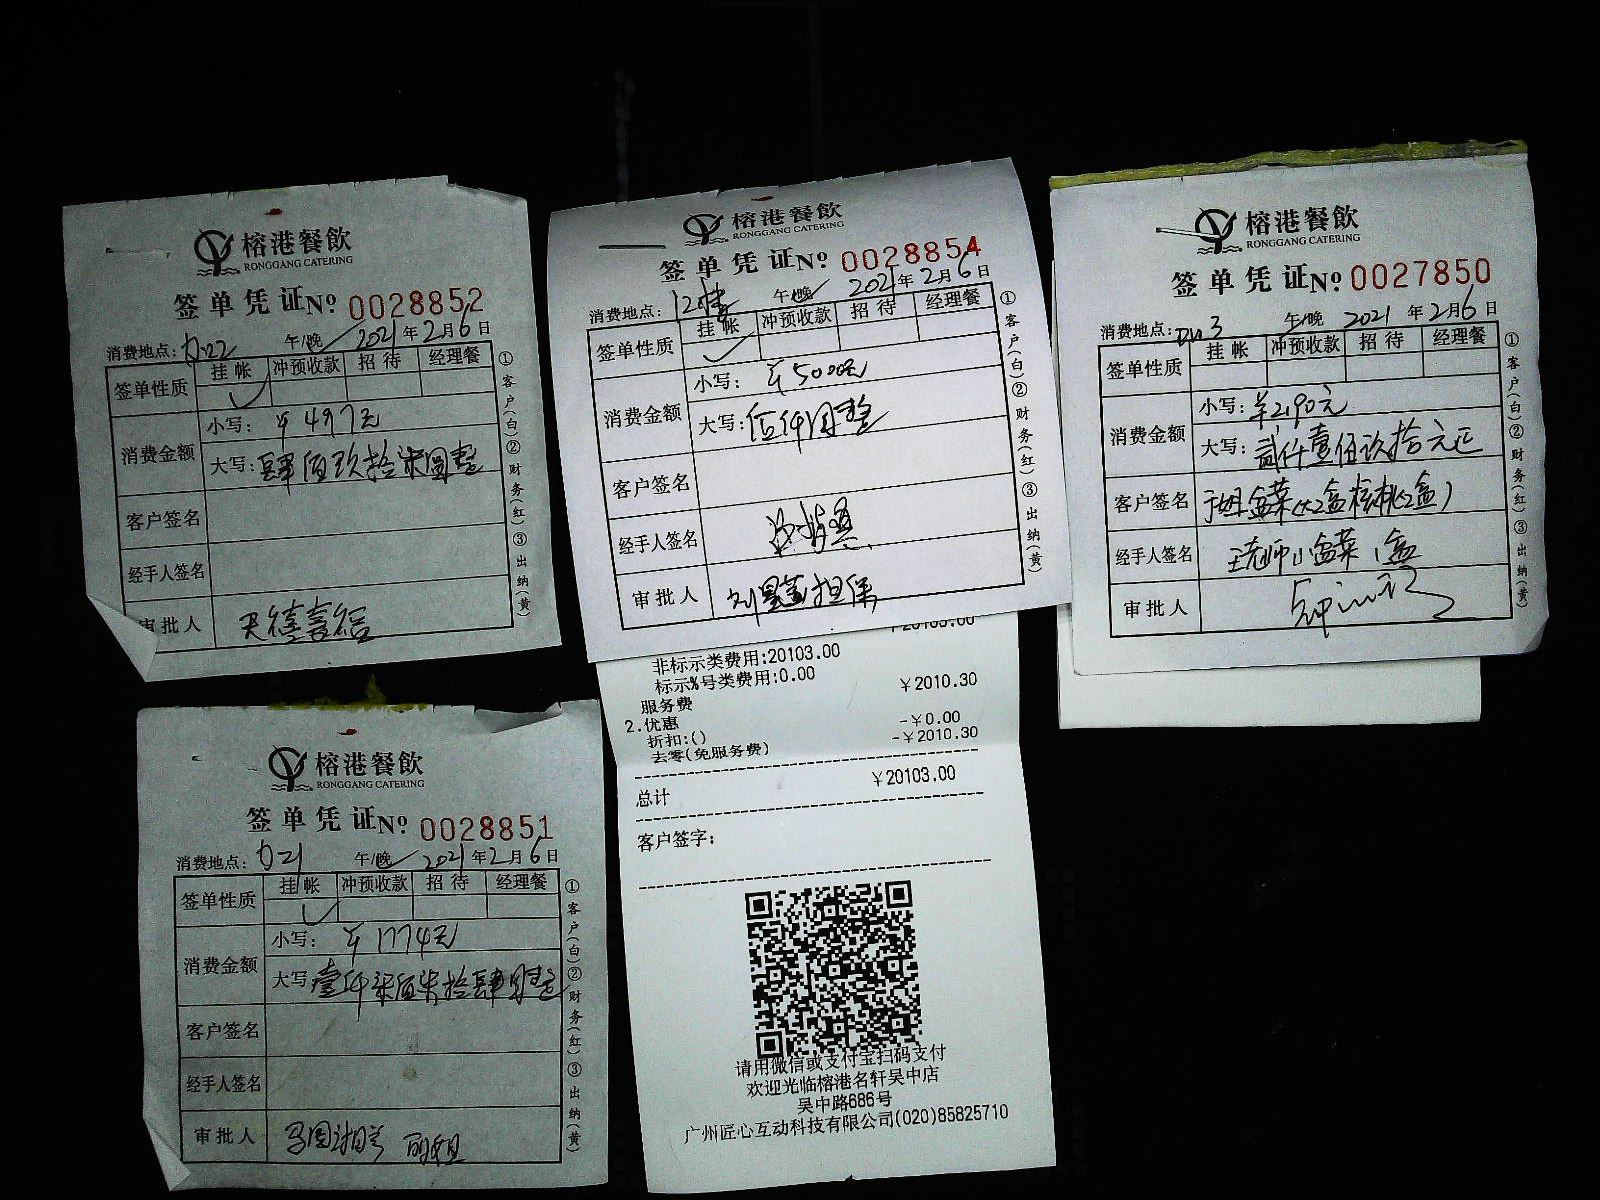 榕港餐飲
RONGGANG CATERING
签单凭证№ 0028852
消费地点: 午/晚 2021年2月6日
签单性质 挂帐 冲预收款 招待 经理餐
消费金额 小写: ¥497元
大写: 肆佰玖拾柒圆整
客户签名
经手人签名
审批人
①客户(白)②财务(红)③出纳(黄)
榕港餐飲
RONGGANG CATERING
签单凭证№ 0028854
消费地点: 午/晚 2021年2月6日
签单性质 挂帐 冲预收款 招待 经理餐
消费金额 小写: ¥5000元
大写: 伍仟圆整
客户签名
经手人签名
审批人 担保
①客户(白)②财务(红)③出纳(黄)
榕港餐飲
RONGGANG CATERING
签单凭证№ 0027850
消费地点: 午/晚 2021年2月6日
签单性质 挂帐 冲预收款 招待 经理餐
消费金额 小写: ¥2190元
大写: 贰仟壹佰玖拾元正
客户签名 盆菜 2盒核桃2盒)
经手人签名 王老师小盆菜1盒
审批人
①客户(白)②财务(红)③出纳(黄)
榕港餐飲
RONGGANG CATERING
签单凭证№ 0028851
消费地点: 午/晚 2021年2月6日
签单性质 挂帐 冲预收款 招待 经理餐
消费金额 小写: ¥1774元
大写 壹仟柒佰柒拾肆圆整
客户签名
经手人签名
审批人
①客户(白)②财务(红)③出纳(黄)
¥20103.00
非标示类费用:20103.00
标示%号类费用:0.00
服务费 ¥2010.30
2.优惠
折扣:() -¥0.00
去零(免服务费) -¥2010.30
总计 ¥20103.00
客户签字:
请用微信或支付宝扫码支付
欢迎光临榕港名轩吴中店
吴中路686号
广州匠心互动科技有限公司(020)85825710